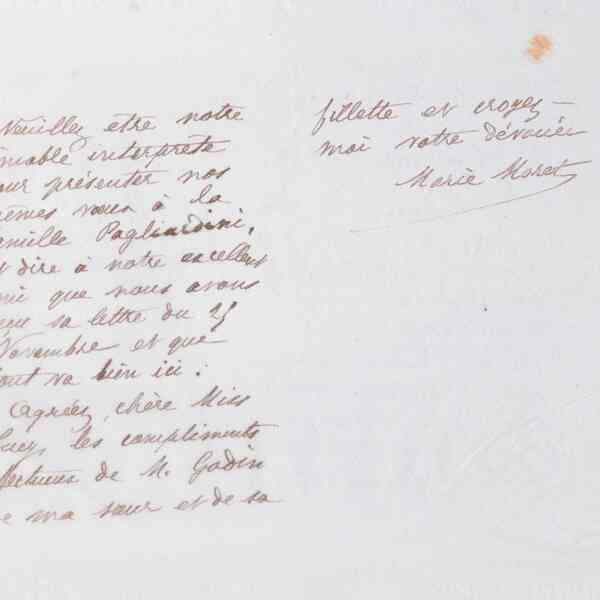 Veuillez être notre
imable interprète
our présenter nos
êmes vœux à la
amille Pagliardini,
t dire à notre excellent
mi que nous avons
eçu sa lettre du 25
Novembre et que
tout va bien ici.
Agréez, chère Miss
les compliments
fectueux de M. Godin
e ma sœur et de sa
fillette et croyez-
moi votre dévouée
Marie Moret